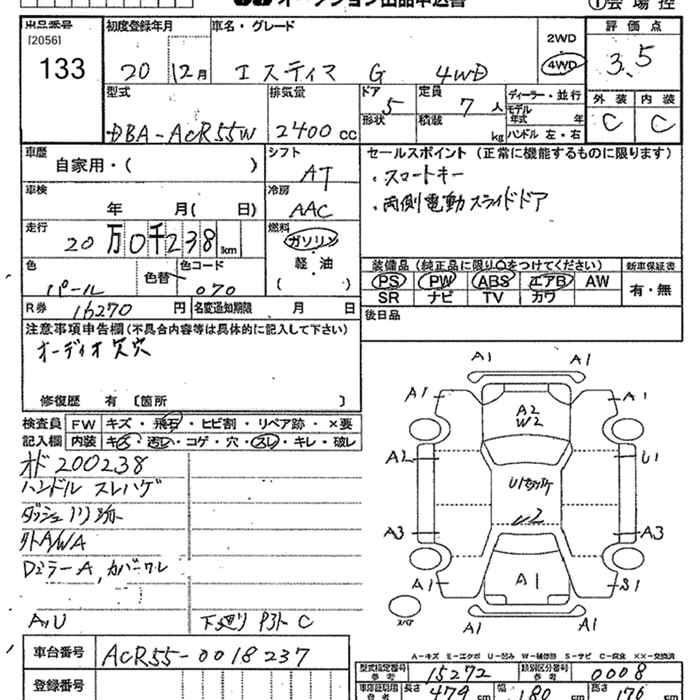 オークション出品申込書
①会場控
出品番号
[2056]
133
初度登録年月
20 12月
車名・グレード
エスティマ G 4WD
2WD
4WD
評価点
3.5
外装 内装
C C
型式
DBA-ACR55W
排気量
2400cc
ドア
5
定員
7人
形状
積載
kg
ディーラー・並行
モデル
年式 年
ハンドル 左・右
車歴
自家用・( )
シフト
AT
車検
年 月( 日)
冷房
AAC
走行
20万0千238km
燃料
ガソリン
軽・油
( )
色
パール
色替
色コード
070
R券
16270円
名変通知期限 月 日
セールスポイント (正常に機能するものに限ります)
・スマートキー
・両側電動スライドドア
装備品 (純正品に限り○をつけてください)
新車保証書
PS PW ABS エアB AW
SR ナビ TV カワ
有・無
後日品
注意事項申告欄(不具合内容等は具体的に記入して下さい)
オーディオ欠穴
修復歴 有 〔箇所 〕
検査員
記入欄
FW キズ・飛石・ヒビ割・リペア跡・×要
内装 キズ・汚レ・コゲ・穴・スレ・キレ・破レ
オド200238
ハンドル スレハゲ
ダッシュノリ跡
外A/WA
Dミラー A, カバーワレ
下廻り
C
A1 A1
A1 A1
A2
W2
A2 U1
U2
A3 A3
A1 A1 S1
A1 A1
スペア
A-キズ E-エクボ U-凹み W-補修跡 S-サビ C-腐食 XX-交換済
車台番号
ACR55-0018237
登録番号
型式指定番号
参考
15272
類別区分番号
参考
0008
車庫証明用
参考
長さ 479cm 幅 180cm 高さ 176cm